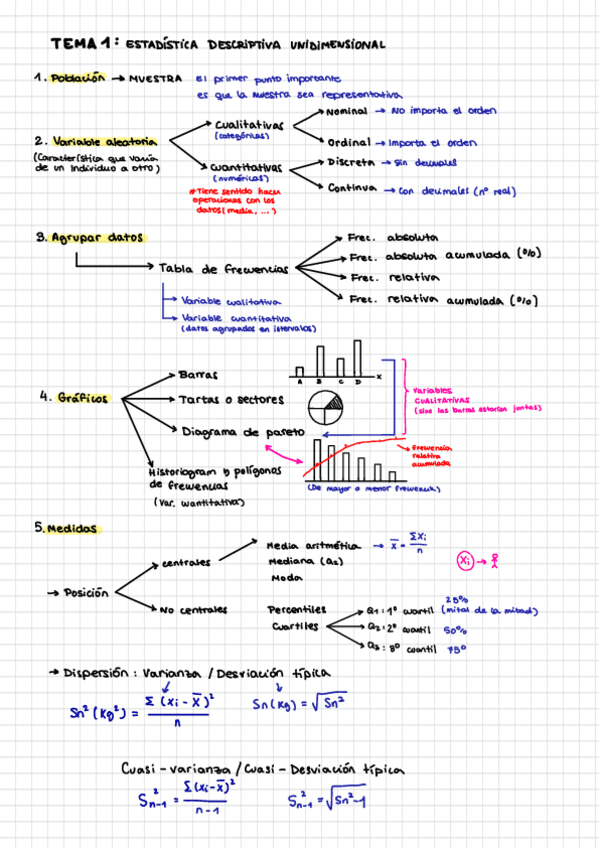 TEMA 1: ESTADÍSTICA DESCRIPTIVA UNIDIMENSIONAL
1. Población → MUESTRA el primer punto importante
es que la muestra sea representativa
2. Variable aleatoria
(Característica que varía
de un individuo a otro)
Cualitativas
(categóricas)
Nominal → No importa el orden
Ordinal → Importa el orden
Cuantitativas
(numéricas)
Discreta → Sin decimales
Continua → Con decimales (nº real)
*Tiene sentido hacer
operaciones con los
datos (media, ...)
3. Agrupar datos
Tabla de frecuencias
Frec. absoluta
Frec. absoluta acumulada (%)
Frec. relativa
Frec. relativa acumulada (%)
→ Variable cualitativa
→ Variable cuantitativa
(datos agrupados en intervalos)
4. Gráficos
Barras
A B C D x
Tartas o sectores
Variables
CUALITATIVAS
(sino las barras estarían juntas)
Diagrama de pareto
Frecuencia
relativa
acumulada
(De mayor a menor frecuencia)
Historiogram y polígonos
de frecuencias
(var. cuantitativa)
5. Medidas
→ Posición
centrales
Media aritmética → x̄ = Σxi / n
Mediana (Q2)
Moda
xi →
No centrales
Percentiles
Cuartiles
Q1: 1º cuartil 25% (mitad de la mitad)
Q2: 2º cuartil 50%
Q3: 3º cuartil 75º
→ Dispersión: Varianza / Desviación típica
Sn² (Kg²) = Σ (xi - x̄)² / n
Sn (Kg) = √Sn²
Cuasi - varianza / Cuasi - Desviación típica
S²n-1 = Σ (xi - x̄)² / n-1
S²n-1 = √Sn²-1